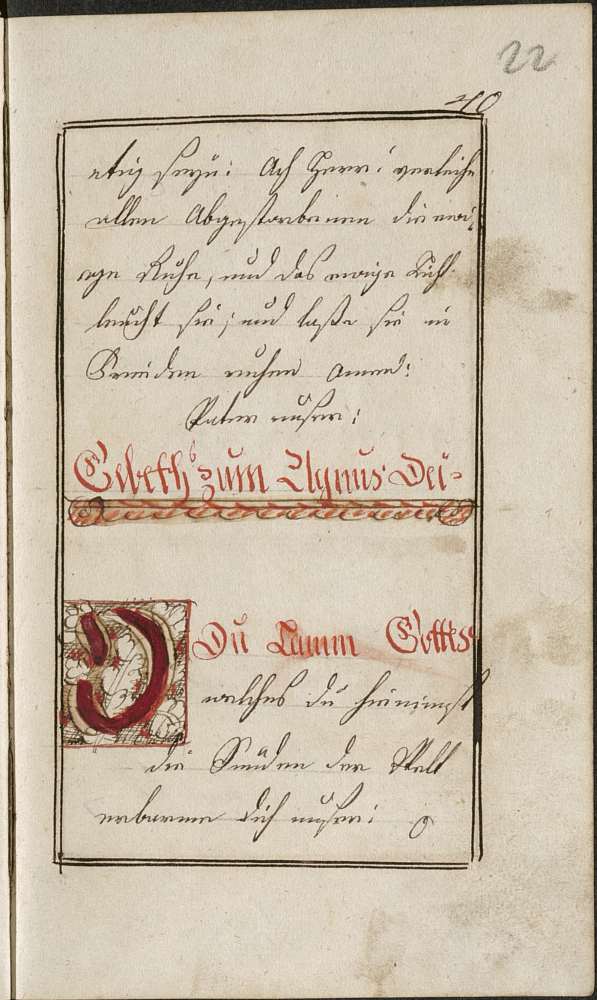 22
40
ctig seyn: Ach Herr! verleihe
allen Abgestorbenen die ewi„
ge Ruhe, und das ewige Licht
leucht sie; und laße sie in
Frieden ruhen Amen:
Vater unser:
Gebeth zum Agnus Dei
O Du Lamm Gottes
welches du hinnimst
die Sünden der Welt
erbarme dich unser: O